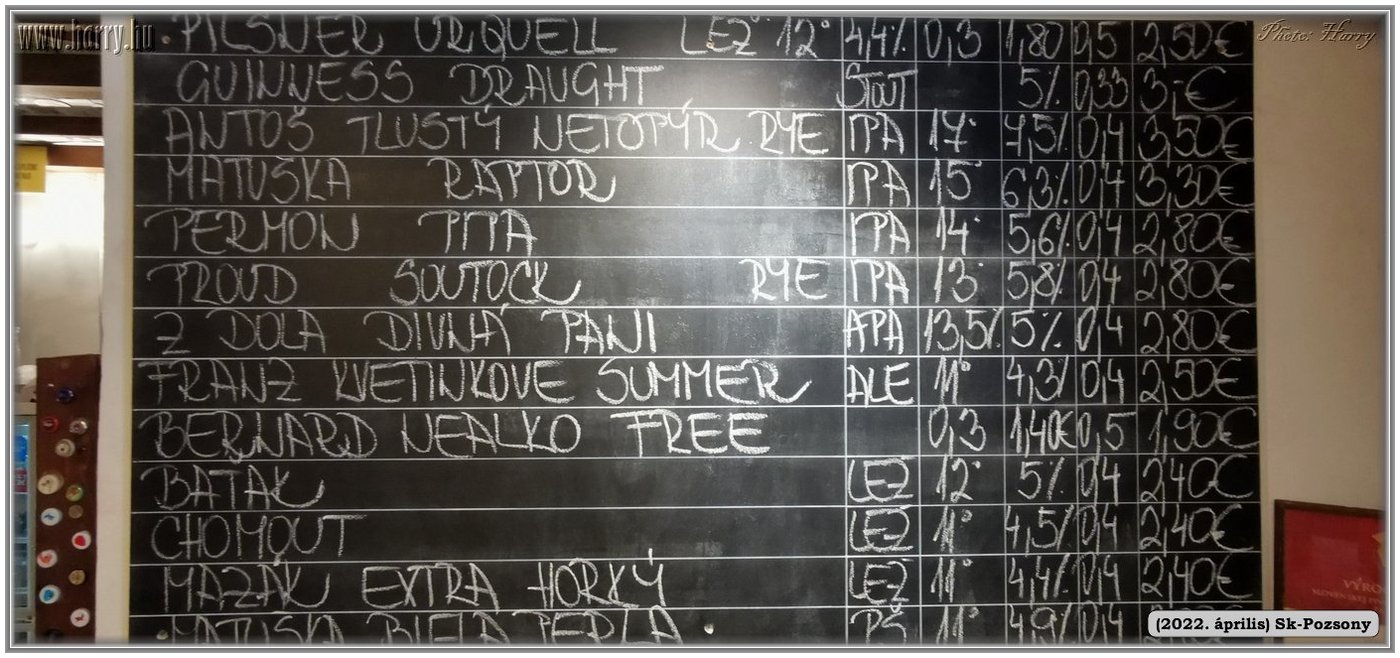 www.harry.hu
Photo: Harry
PILSNER URQUELL LEŽ 12° 4,4% 0,3 1,80 0,5 2,50€
GUINNESS DRAUGHT STOUT 5% 0,33 3,-€
ANTOŠ TLUSTÝ NETOPÝR RYE IPA 17° 7,5% 0,4 3,50€
MATUŠKA RAPTOR IPA 15° 6,3% 0,4 3,30€
PERMON PIPA IPA 14° 5,6% 0,4 2,80€
PROUD SOUTOCK RYE IPA 13° 5,8% 0,4 2,80€
Z DOLA DIVNÁ PANI APA 13,5% 5% 0,4 2,80€
FRANZ KVETINKOVE SUMMER ALE 11° 4,3% 0,4 2,50€
BERNARD NEALKO FREE 0,3 1,40€ 0,5 1,90€
BAŤAK LEŽ 12° 5% 0,4 2,40€
CHOMOUT LEŽ 11° 4,5% 0,4 2,40€
MAZÁK EXTRA HORKÝ LEŽ 11° 4,4% 0,4 2,40€
MATUŠKA BIELA PERLA PŠ 11° 4,9% 0,4
(2022. április) Sk-Pozsony